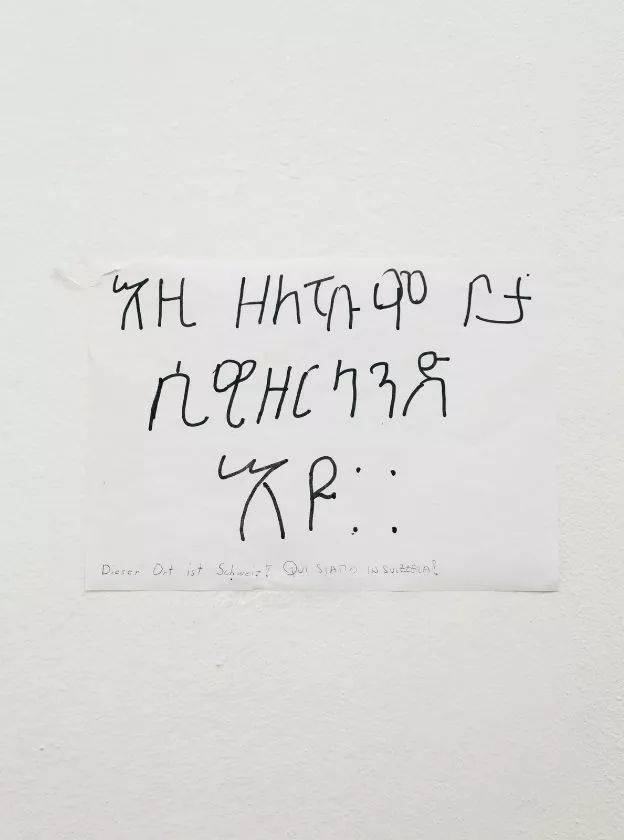 እዚ
ሲዊዘርላንድ
እዩ።
Dieser Ort ist Schweiz! QUI SIAMO IN SVIZZERA!